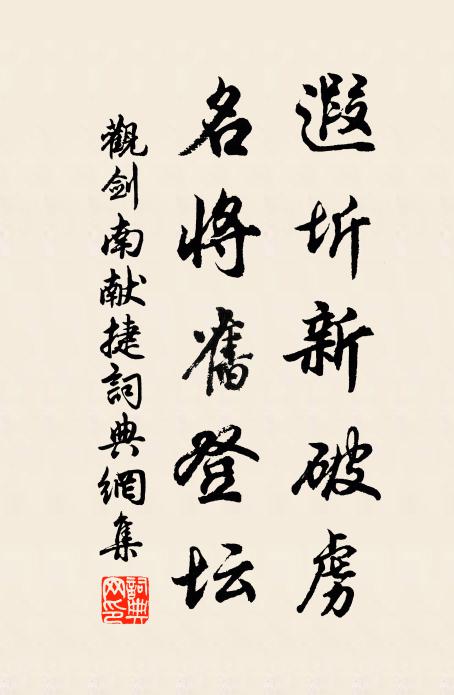 遐圻新破虏
名將舊登坛
觀劍南献捷詞典網集
詞典
网印